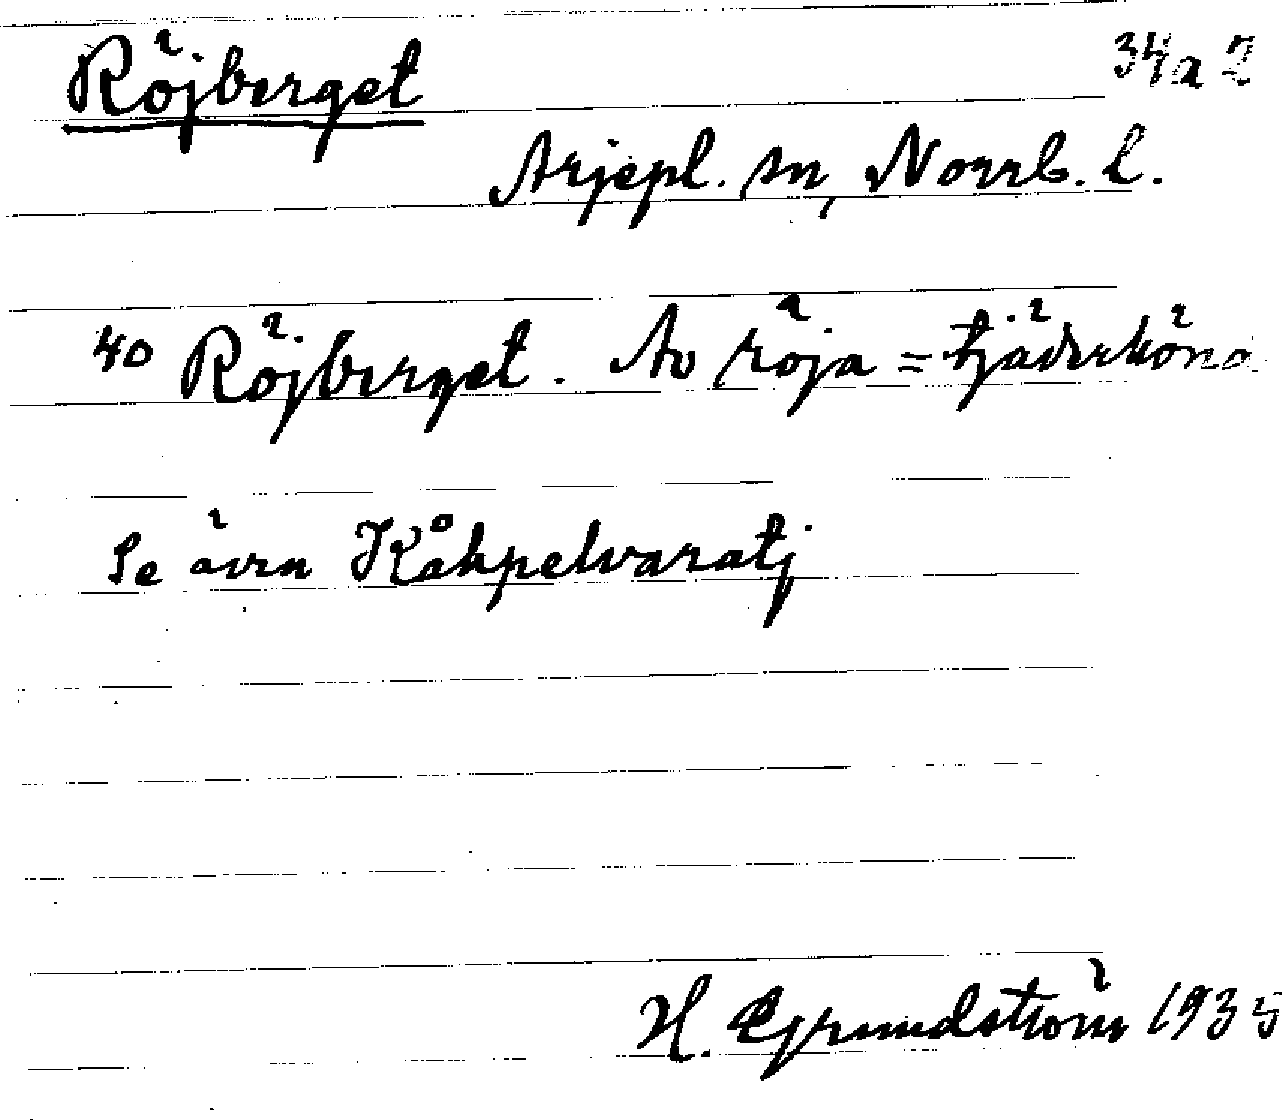 Röjberget 34a2
Arjepl. sn, Norrb. l.
40 Röjberget. Av röja = tjäderhöna
Se även Kåhpelvaratj
H. Grundström 1935